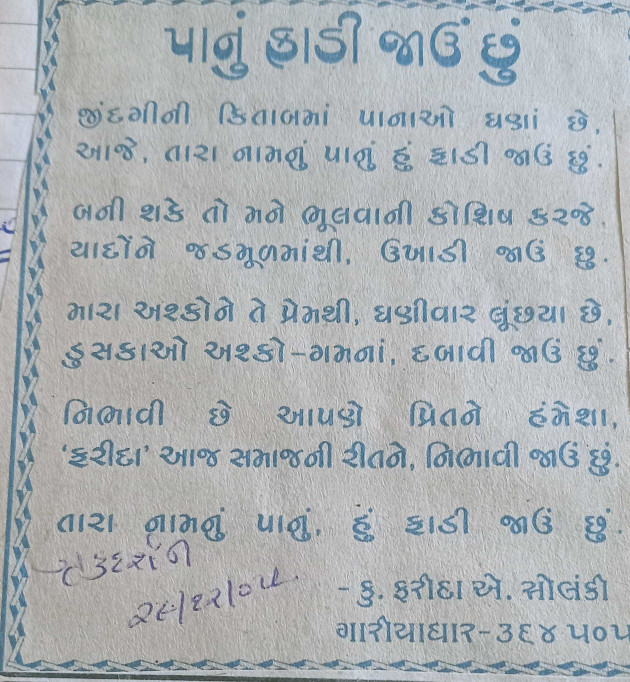 પાનું ફાડી જાઉં છું
જીંદગીની કિતાબમાં પાનાઓ ઘણાં છે,
આજે, તારા નામનું પાનું હું ફાડી જાઉં છું.
બની શકે તો મને ભૂલવાની કોશિષ કરજે
યાદોંને જડમૂળમાંથી, ઉખાડી જાઉં છું.
મારા અશ્કોને તે પ્રેમથી, ઘણીવાર લૂંછયા છે,
ડુસકાઓ અશ્કો-ગમનાં, દબાવી જાઉં છું.
નિભાવી છે આપણે પ્રિતને હંમેશા,
'ફરીદા' આજ સમાજની રીતને, નિભાવી જાઉં છું.
તારા નામનું પાનું, હું ફાડી જાઉં છું.
- કુ. ફરીદા એ. સોલંકી
ગારીયાધાર-૩૬૪ ૫૦૫